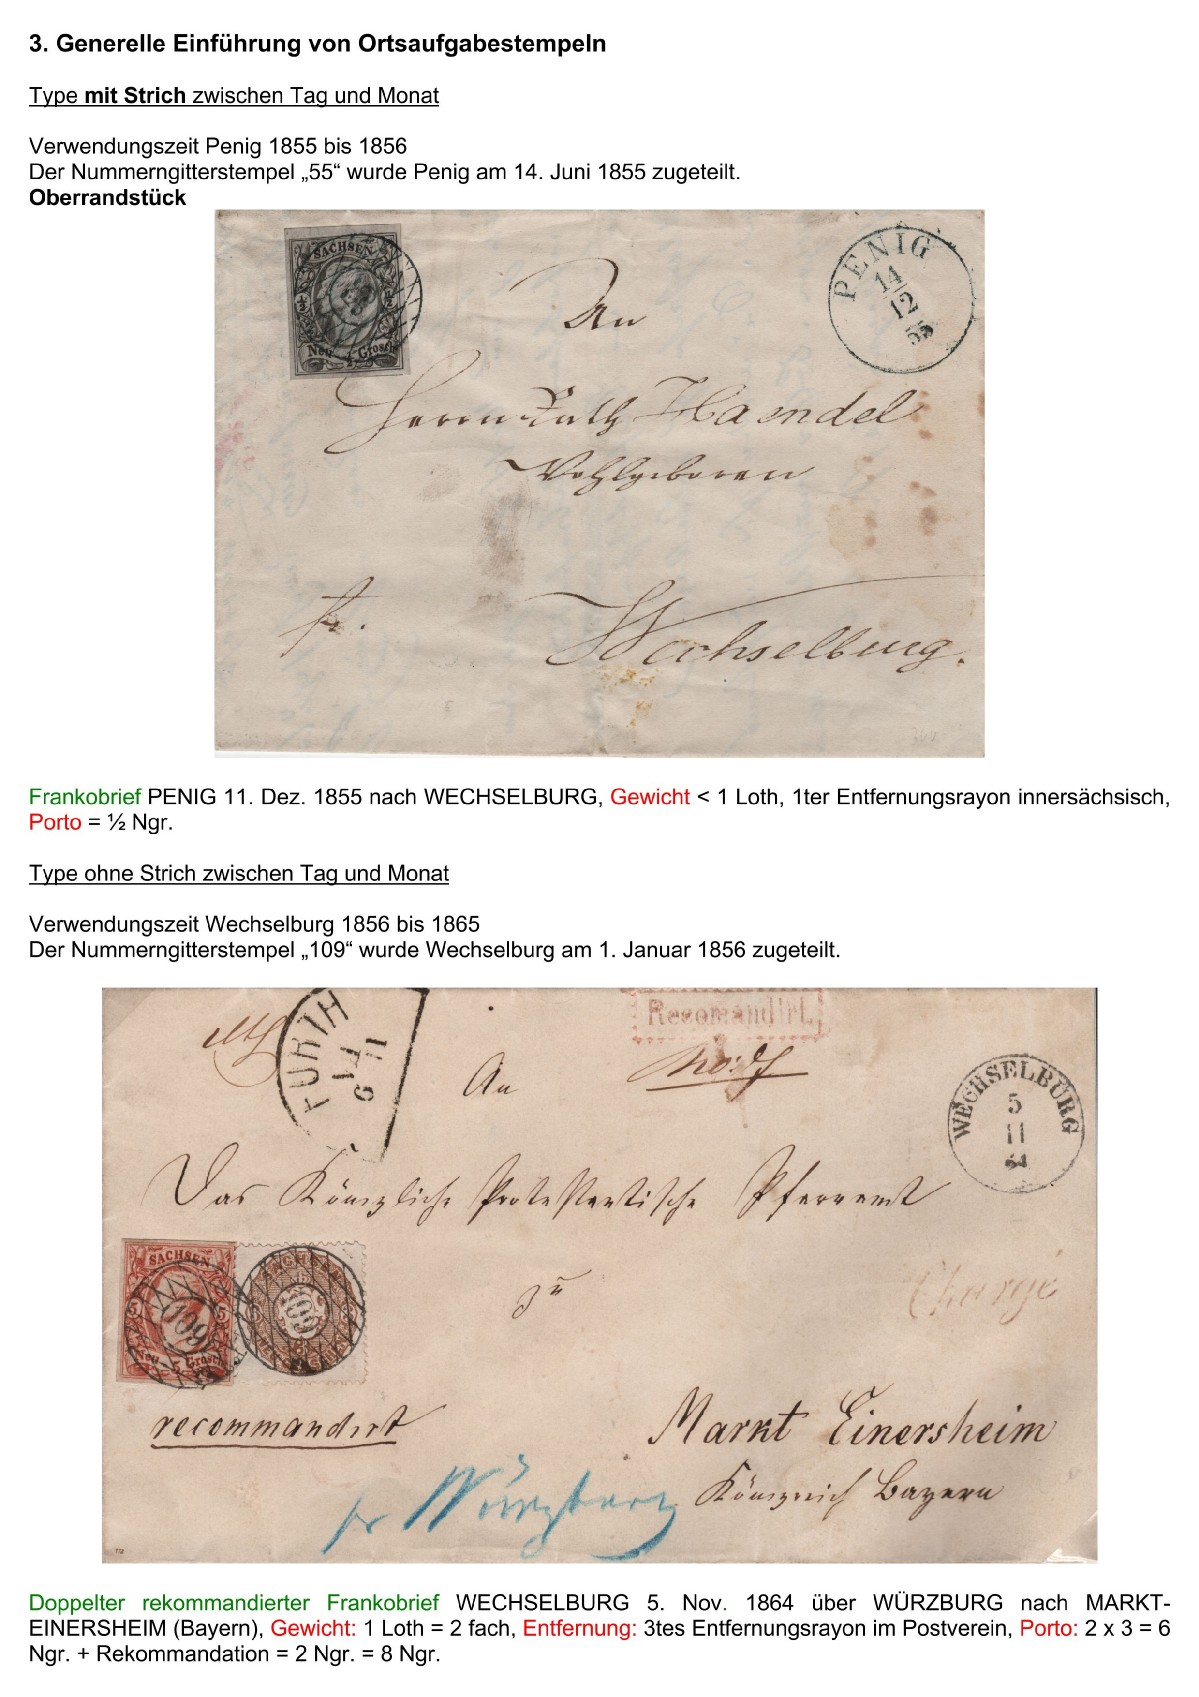 3. Generelle Einführung von Ortsaufgabestempeln
Type mit Strich zwischen Tag und Monat
Verwendungszeit Penig 1855 bis 1856
Der Nummerngitterstempel „55“ wurde Penig am 14. Juni 1855 zugeteilt.
Oberrandstück
SACHSEN
½ ½
Neu ½ Grosch
PENIG
14
12
55
An
Herrn Rath Haendel
Wohlgeboren
fr.
Wechselburg.
Frankobrief PENIG 11. Dez. 1855 nach WECHSELBURG, Gewicht < 1 Loth, 1ter Entfernungsrayon innersächsisch,
Porto = ½ Ngr.
Type ohne Strich zwischen Tag und Monat
Verwendungszeit Wechselburg 1856 bis 1865
Der Nummerngitterstempel „109“ wurde Wechselburg am 1. Januar 1856 zugeteilt.
FÜRTH
6 11
Recomandirt.
An
WECHSELBURG
5
11
Das Königliche Protestantische Pfarramt
SACHSEN
109
5 5
Neu 5 Grosch
109
zu
Charge
recommandirt
Markt Einersheim
Königreich Bayern
pr Würzburg
Doppelter rekommandierter Frankobrief WECHSELBURG 5. Nov. 1864 über WÜRZBURG nach MARKT-
EINERSHEIM (Bayern), Gewicht: 1 Loth = 2 fach, Entfernung: 3tes Entfernungsrayon im Postverein, Porto: 2 x 3 = 6
Ngr. + Rekommandation = 2 Ngr. = 8 Ngr.